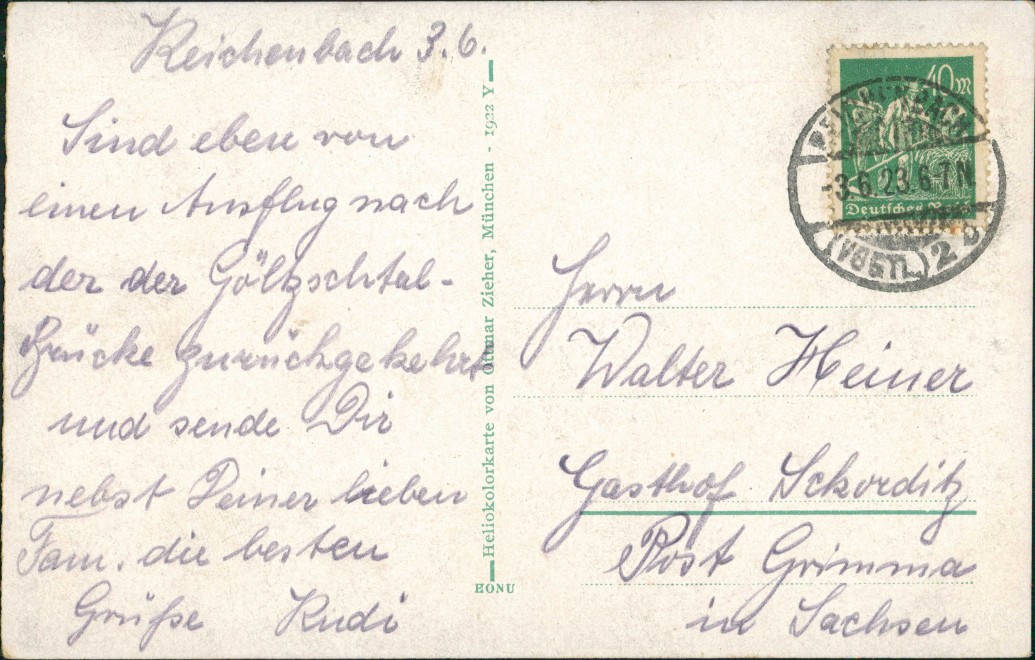 Reichenbach 3.6.
Sind eben von
einen Ausflug nach
der der Göltzschtal-
Brücke zurückgekehrt
und sende Dir
nebst Deiner lieben
Fam. die besten
Grüße Rudi
Heliokolorkarte von Ottmar Zieher, München - 1922 Y
EONU
40 m
Deutsches Reich
REICHENBACH
-3.6.23.6-7N
(VOGTL.) 2 b
Herrn
Walter Heiner
Gasthof Sckorditz
Post Grimma
in Sachsen